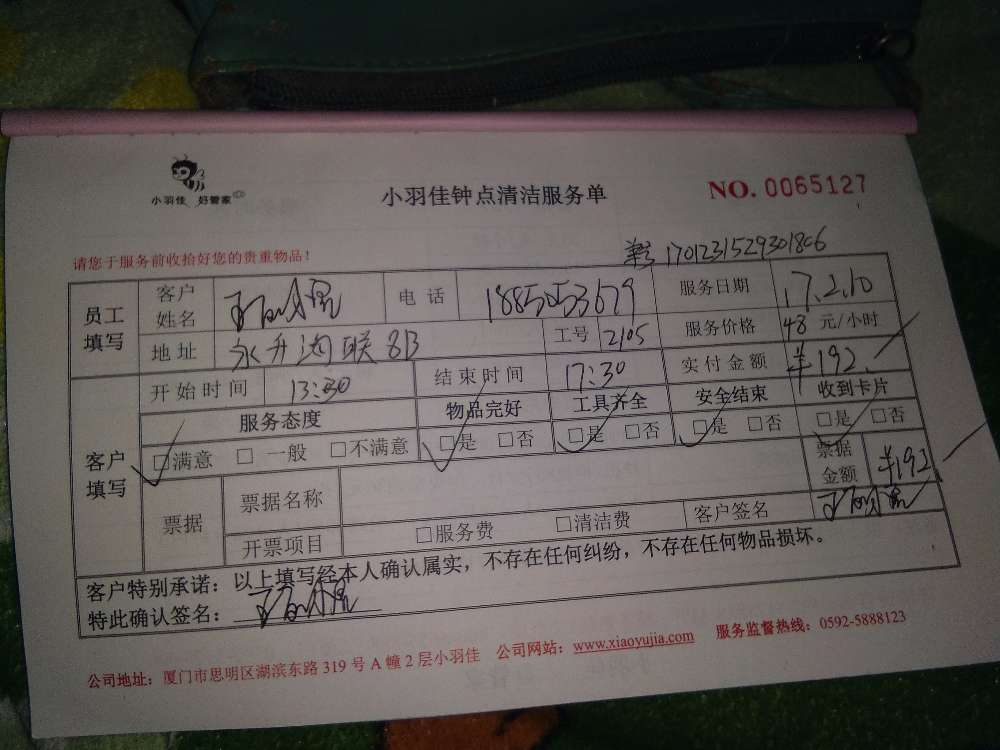 小羽佳 好管家
小羽佳钟点清洁服务单
NO. 0065127
请您于服务前收拾好您的贵重物品！
1701231529301806
员工填写
客户姓名
电话 1885053679
服务日期 17.2.10
地址 永升海联8B
工号 2105
服务价格 48 元/小时
客户填写
开始时间 13:30
结束时间 17:30
实付金额 ¥192
服务态度 物品完好 工具齐全 安全结束 收到卡片
□满意 □一般 □不满意 □是 □否 □是 □否 □是 □否 □是 □否
票据
票据名称
票据金额 ¥192
开票项目 □服务费 □清洁费
客户签名
客户特别承诺：以上填写经本人确认属实，不存在任何纠纷，不存在任何物品损坏。
特此确认签名：
公司地址：厦门市思明区湖滨东路 319 号 A 幢 2 层小羽佳 公司网站：www.xiaoyujia.com 服务监督热线：0592-5888123